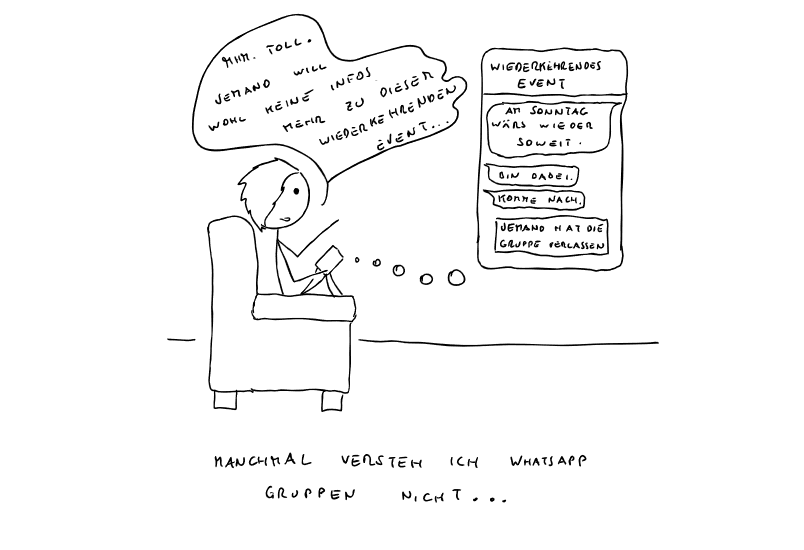 MHM. TOLL.
JEMAND WILL
WOHL KEINE INFOS
MEHR ZU DIESEM
WIEDERKEHRENDEN
EVENT...
WIEDERKEHRENDES
EVENT
AM SONNTAG
WÄRS WIEDER
SOWEIT.
BIN DABEI.
KOMME NACH.
JEMAND HAT DIE
GRUPPE VERLASSEN
MANCHMAL VERSTEH ICH WHATSAPP
GRUPPEN NICHT...